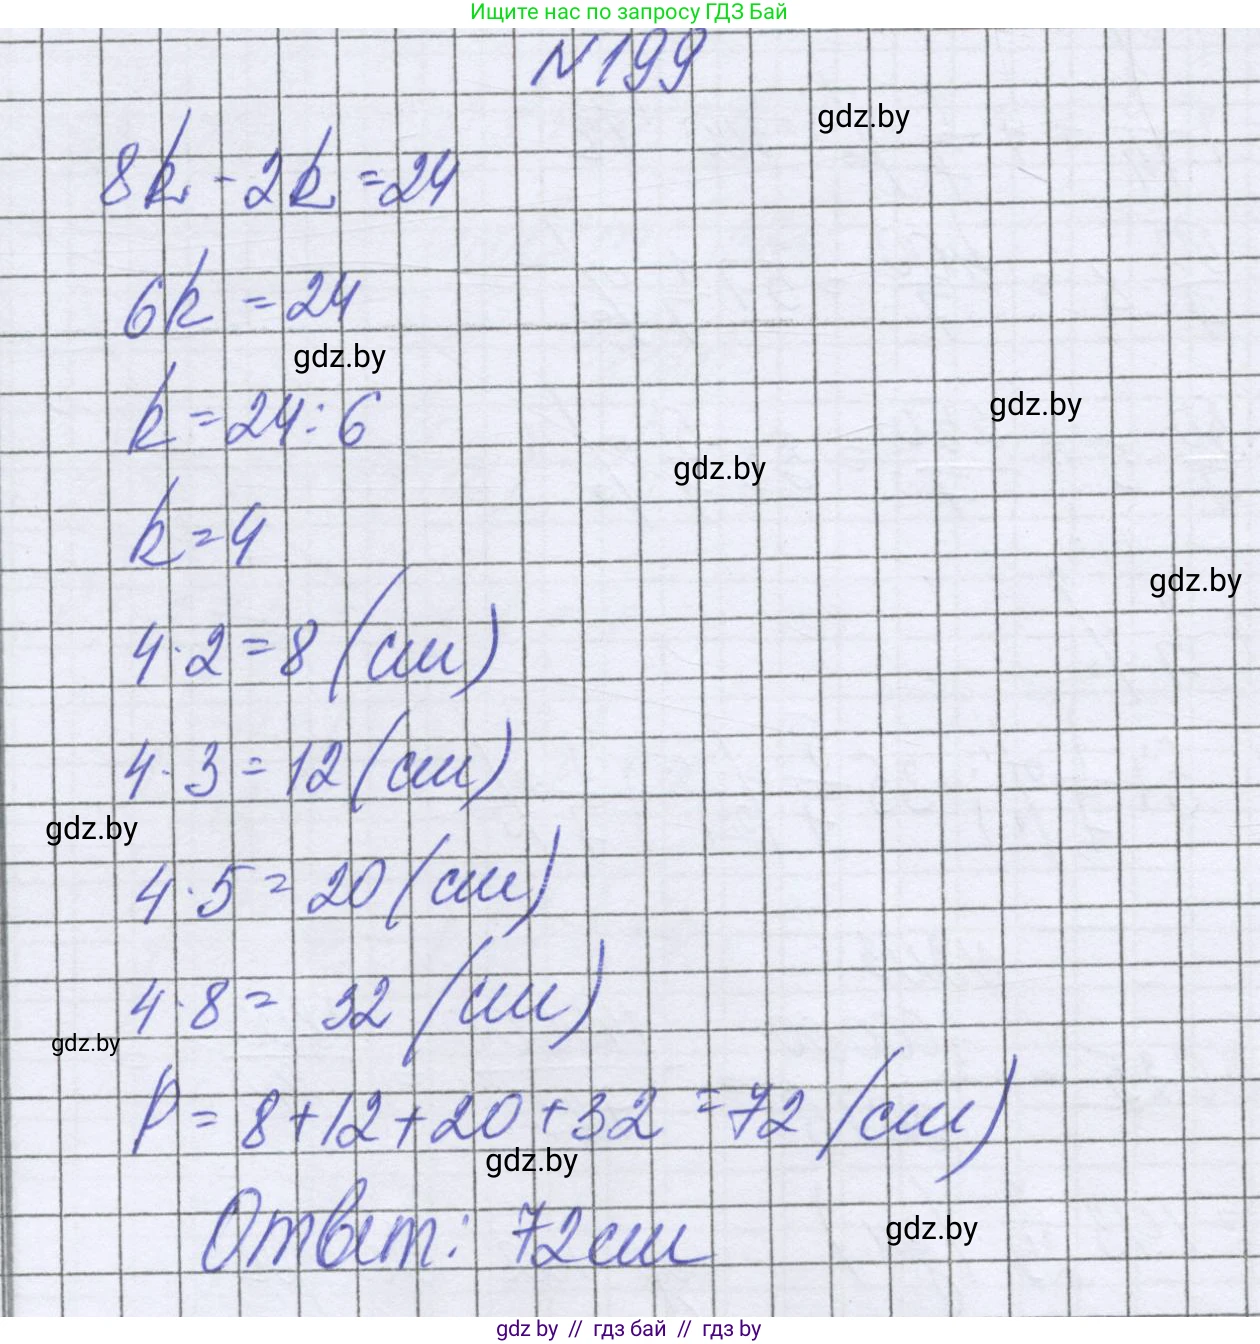 Ищите нас по запросу ГДЗ Бай
N199
gdz.by
8k - 2k = 24
6k = 24
gdz.by
k = 24 : 6
gdz.by
gdz.by
k = 4
gdz.by
4 · 2 = 8 (см)
4 · 3 = 12 (см)
gdz.by
4 · 5 = 20 (см)
4 · 8 = 32 (см)
gdz.by
P = 8 + 12 + 20 + 32 = 72 (см)
gdz.by
Ответ: 72 см
gdz.by
gdz.by // гдз бай // гдз by